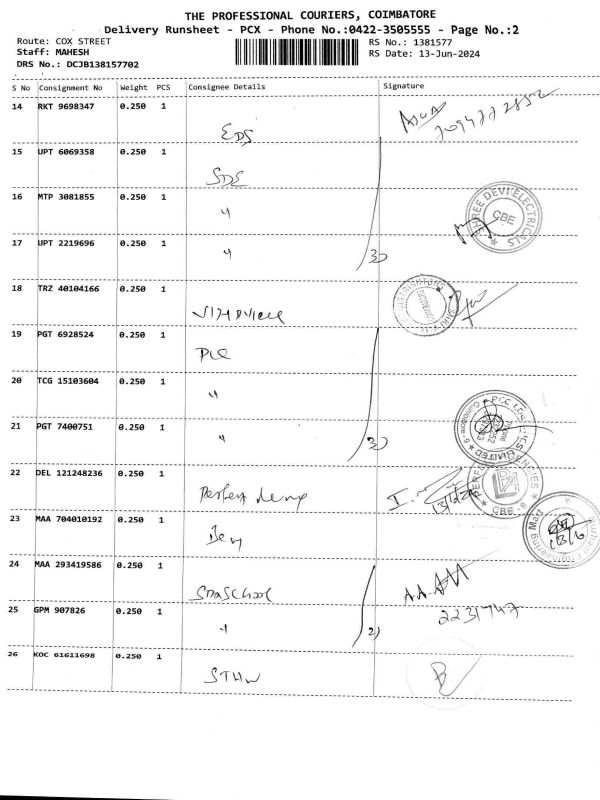 THE PROFESSIONAL COURIERS, COIMBATORE
Delivery Runsheet - PCX - Phone No.:0422-3505555 - Page No.:2
Route: COX STREET
RS No.: 1381577
Staff: MAHESH
RS Date: 13-Jun-2024
DRS No.: DCJB138157702
S No Consignment No Weight PCS Consignee Details Signature
14 RKT 9698347 0.250 1
EDS
15 UPT 6069358 0.250 1
SDE
16 MTP 3081855 0.250 1
"
SHREE DEVI ELECTRICALS
CBE
17 UPT 2219696 0.250 1
" /3)
18 TRZ 40104166 0.250 1
19 PGT 6928524 0.250 1
PLC
20 TCG 15103604 0.250 1
"
21 PGT 7400751 0.250 1
" /3)
PCC LOGISTICS LIMITED
22 DEL 121248236 0.250 1
CBE
23 MAA 704010192 0.250 1
24 MAA 293419586 0.250 1
A.A.AM
25 GPM 907826 0.250 1
2231747
" /2)
26 KOC 61611698 0.250 1
STHW